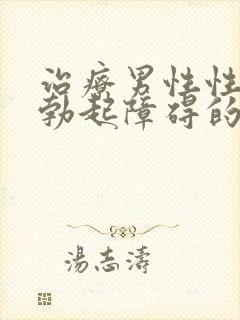 治療男性性
勃起障碍的
湯志濤